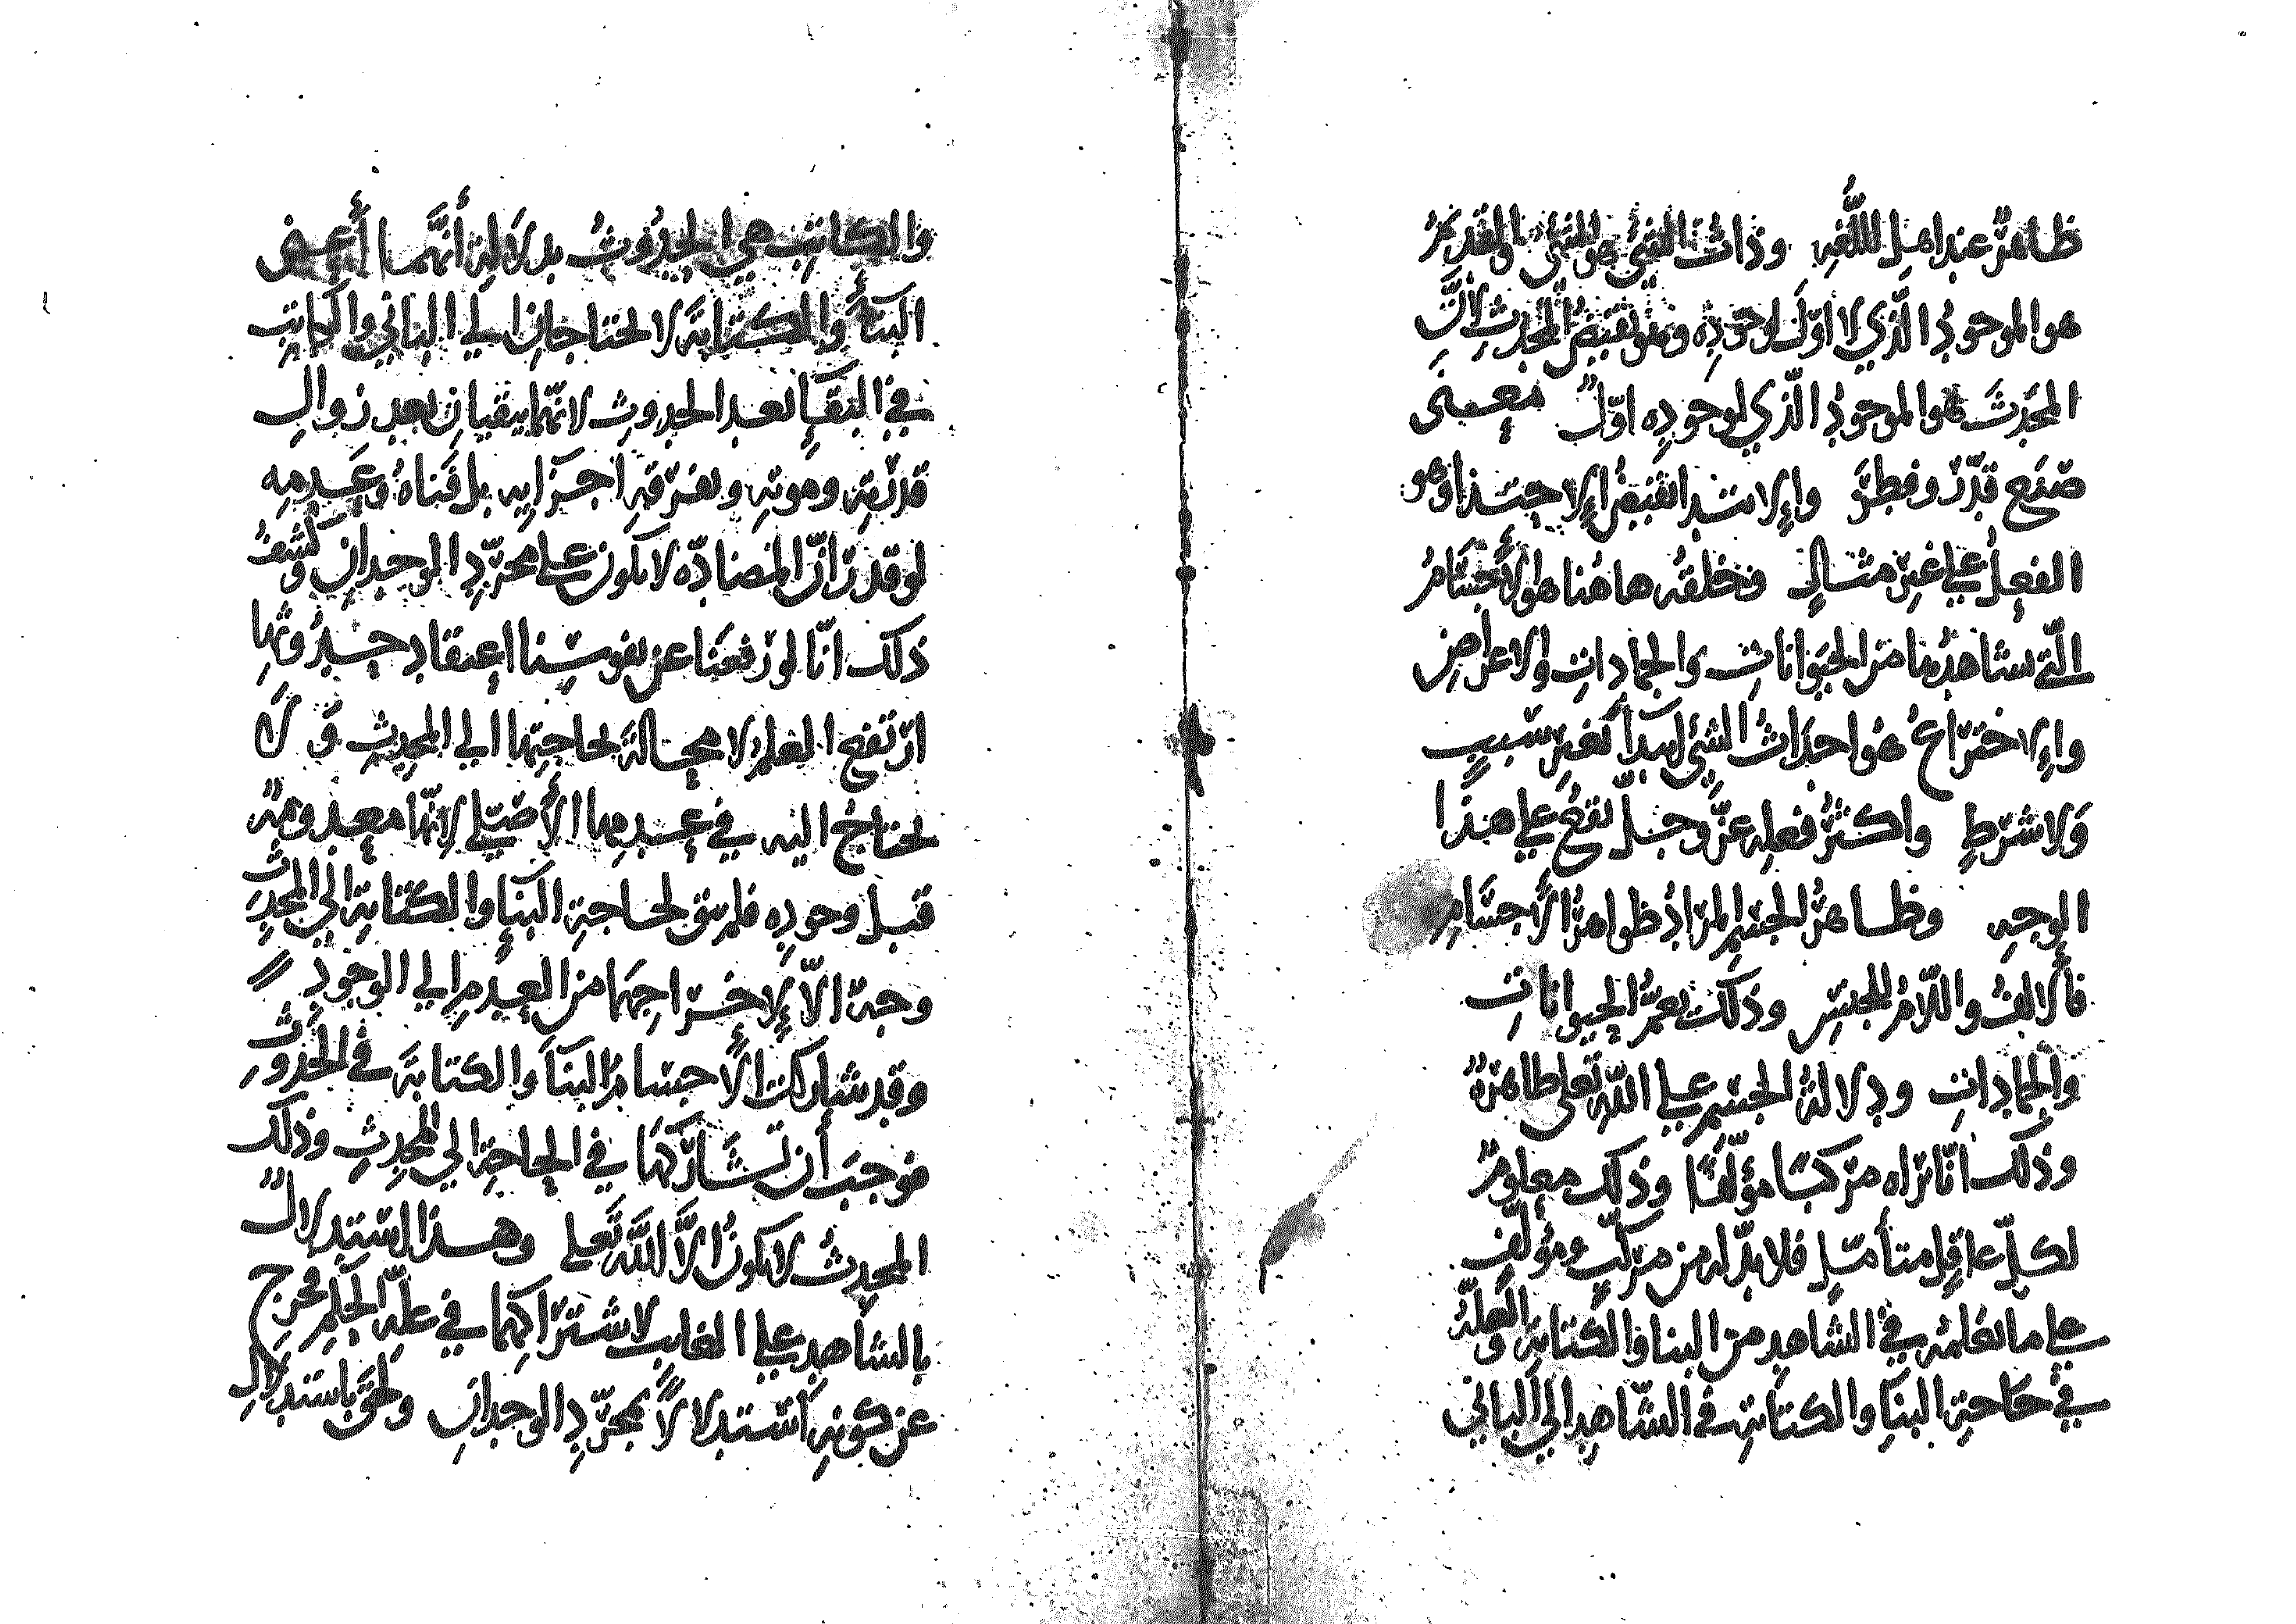 ظاهرٌ عند اهل اللغه وذات الشيئ هو الشيئ والقديمُ
هو الموجودُ الّذي لا اوّل لوجودِه وهو نقيضُ المحدَثِ لانّ
المحدَثَ هو الموجودُ الّذي لوجودِه اوّلٌ معنى
صَنَع قدّر وفطر والإبتدا نقيضُ الإحتذا وهو
الفعلُ على غيرِ مثالٍ فخلقُه هاهُنا هو الأجسَامُ
الّتي نشاهدُها من الحيَوانات والجمادات والاعراضِ
والإختراعُ هو احداثُ الشيئ ابتداً بغيرِ سَببٍ
وَلا شرطٍ واكثرُ فعلِه عزّ وجلّ يقعُ على هذا
الوجهِ وظاهرُ الجسمِ المرادُ ظواهرُ الأجسَامِ
فالألفُ واللّامُ للجنسِ وذلك يعمُّ الحيوانات
والجماداتِ ودلالةُ الجسمِ على اللّه تعلى ظاهرةٌ
وذلك انّا نراه مركبًا مؤلّفًا وذلك معلومٌ
لكلّ عاقلٍ متأمّلٍ فلا بدّ له من مركّبٍ ومؤلّفٍ
على ما نعلمُه في الشاهدِ من البنا والكتابةِ والعلّةُ
في حَاجةِ البنَآ والكتابةِ في الشّاهدِ الى الباني
والكاتبِ هي الحدُوثُ بدلالةِ أنّهما أعني
البنآءَ والكتابةَ لا يحتاجانِ الى الباني والكاتبِ
في البقآءِ بعد الحدوثِ لانّهما يبقيانِ بعد زوالِ
قدرتِه وموتِه وتفرّقِ اجزايِه بل فَناهُ وعَدمِه
لو قدّر انّ المضادّه لا يكون على مجرّدِ الوجدانِ وكشفُ
ذلك انّا لو رفعنَا عن نفوسِنا اعتقادَ حدوثِها
ارتفع العلمُ لا محالةَ بحاجتِها الى المحدِثِ وَلَا
يحتاجُ اليه في عدمِها الأصليّ لانّها معدومةٌ
قبل وجودِه فلم يبق لحاجةِ البنآءِ والكتابةِ الى المحدِثِ
وجهٌ الّا لإخراجِهما من العدمِ الى الوجودِ
وقد شاركت الأجسامُ البنآءَ والكتابةَ في الحُدوثِ
فوجبَ أن تشَاركَهَا في الحاجةِ الى المحدِثِ وذلك
المحدِثُ لا يكونُ الّا اللّهَ تَعلى وهذا استدلالٌ
بالشاهدِ على الغايبِ لاشتراكِهما في علّةِ الحكمِ فخرج
عن كونِه استدلالًا بمجرّدِ الوجدانِ ولحق باستدلالِ